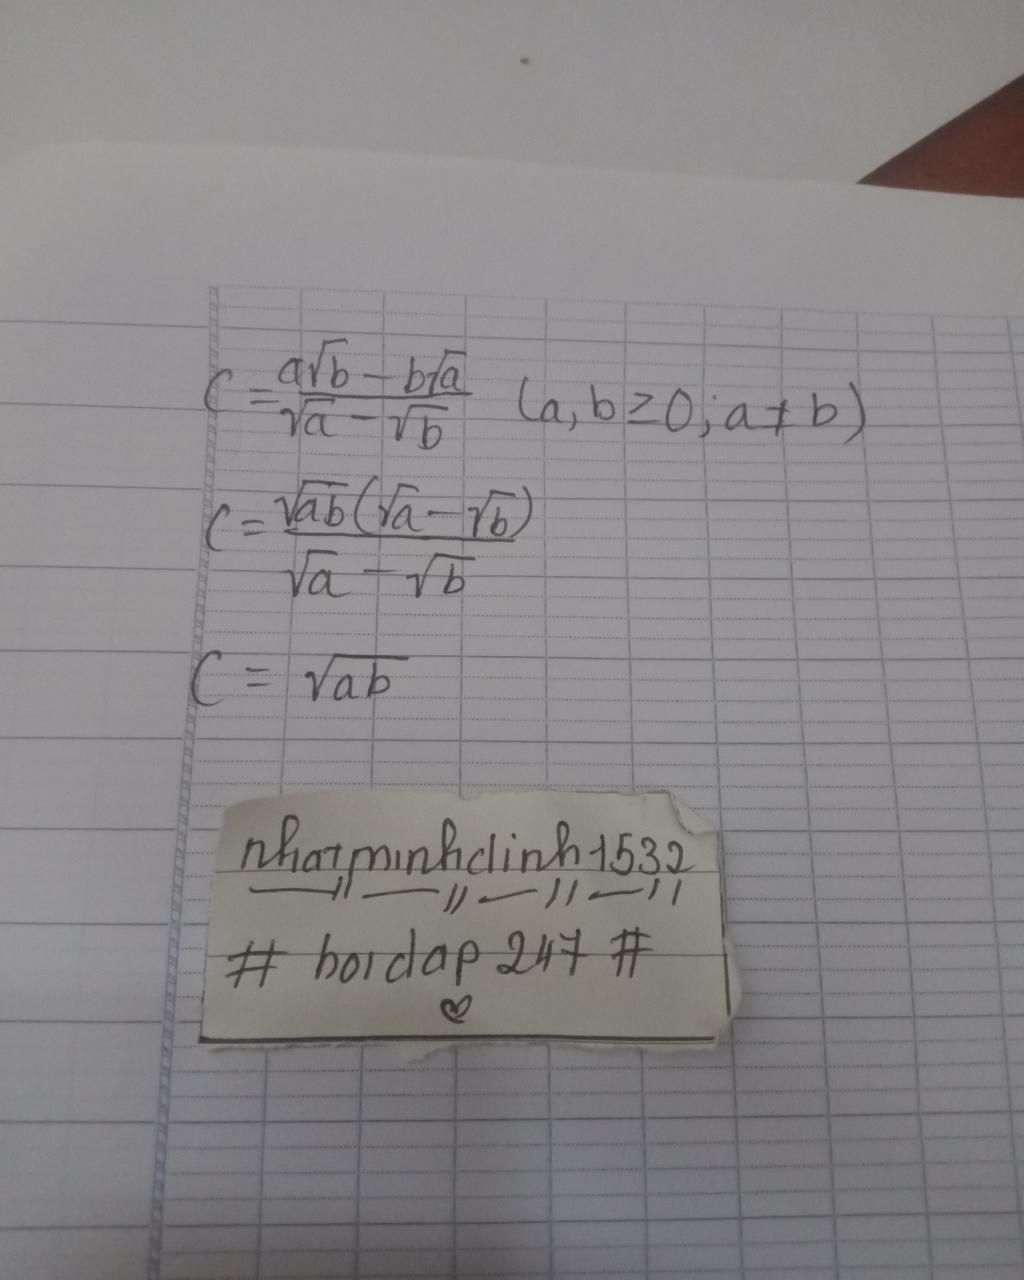 C = a√b - b√a / √a - √b (a, b ≥ 0; a ≠ b)
C = √ab(√a - √b) / √a - √b
C = √ab
nhatminhdinh1532
# hoidap 247 #